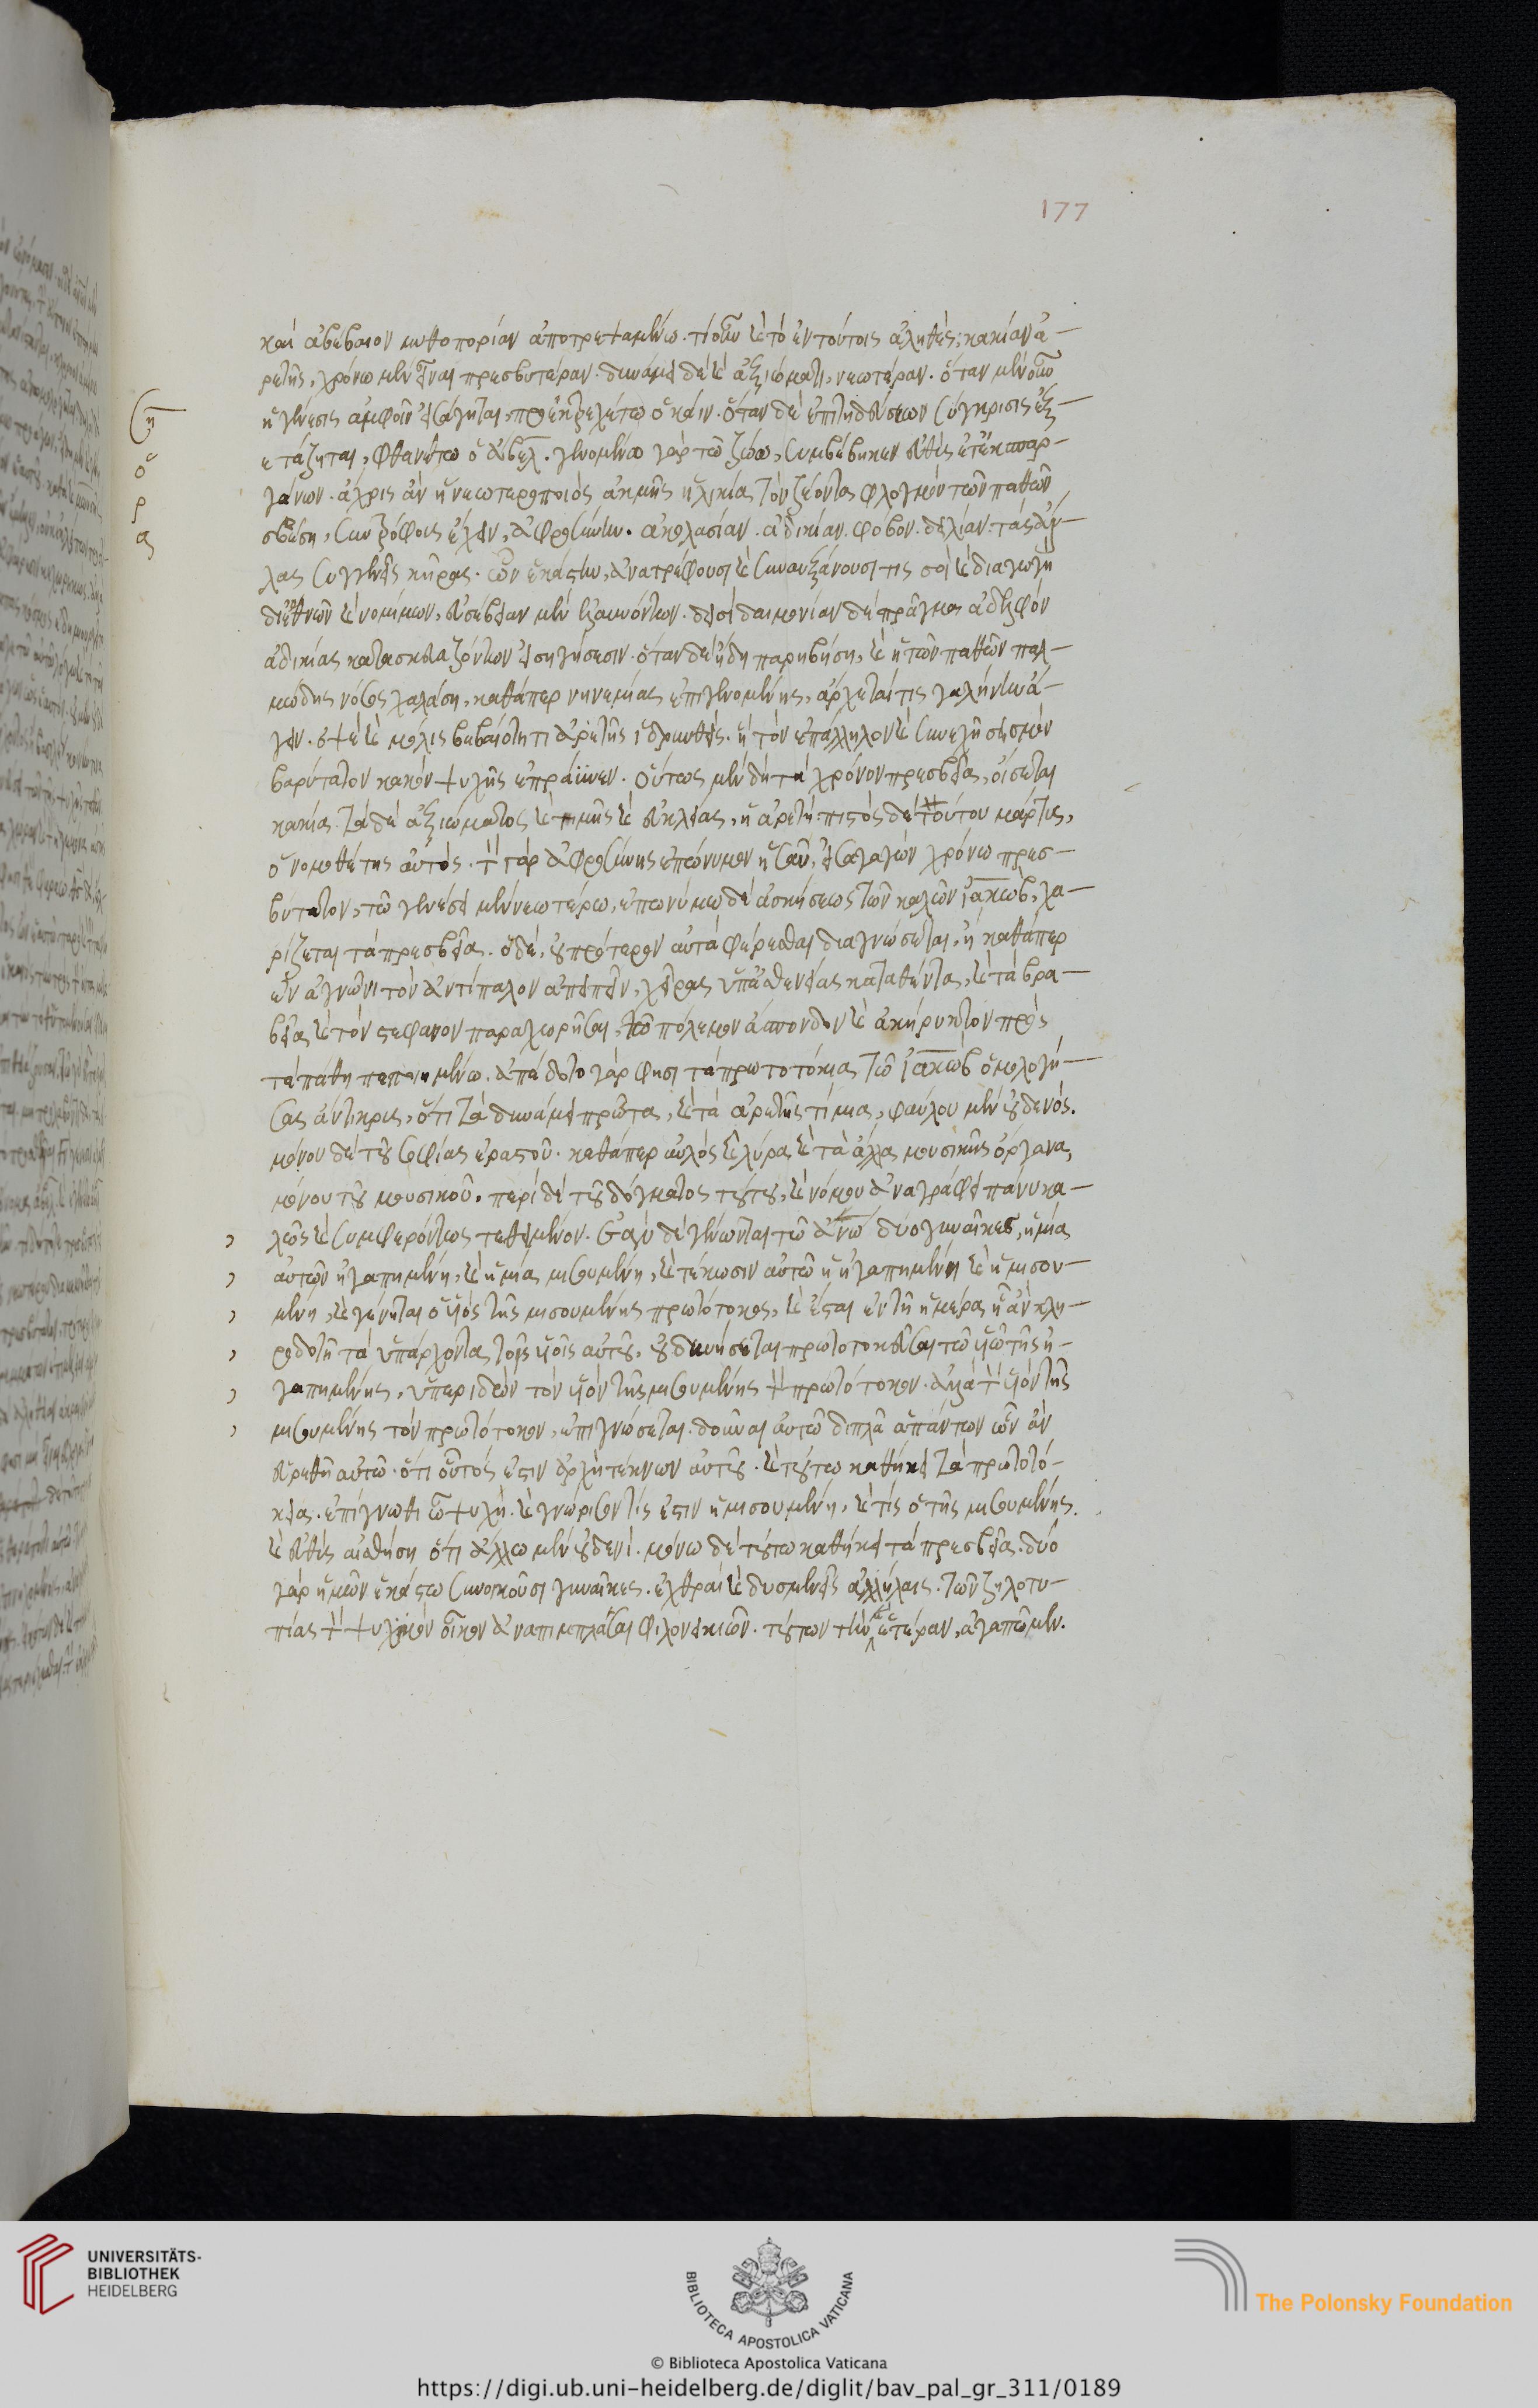 177
καὶ ἀβέβαιον μυθοποιίαν ἀποτρεψαμένω. τί οὖν ἐστὶ τὸ ἐν τούτοις ἀληθές; κακίαν ἀ-
ρετῆς, χρόνω μὲν εἶναι πρεσβυτέραν. δυνάμει δὲ καὶ ἀξιώματι, νεωτέραν. ὅταν μὲν οὖν
ἡ γένεσις ἀμφοῖν εἰσάγηται, προεκτρεχέτω ὁ κάϊν. ὅταν δὲ ἐπιτηδεύσεων σύγκρισις ἐξ-
ετάζηται, φθανέτω ὁ ἄβελ. γενομένω γὰρ τῶ ζώω, συμβέβηκεν εὐθὺς ἔτι ἐκ σπαρ-
γάνων. ἄχρις ἂν ἡ νεωτεροποιὸς ἀκμῆς ἡλικία τὸν ζέοντα φλογμὸν τῶν παθῶν
σβέση, συντρόφους ἔχειν, ἀφροσύνην. ἀκολασίαν. ἀδικίαν. φόβον. δειλίαν. τὰς ἄλ-
λας συγγενεῖς κῆρας. ὧν ἑκάστην, ἀνατρέφουσι καὶ συναυξάνουσι τιτθαὶ καὶ παιδαγωγοὶ
δι' ἐθῶν καὶ νομίμων, εὐσέβειαν μὲν ἐξαιρόντων. δεισιδαιμονίαν δὲ πρᾶγμα ἀδελφὸν
ἀδικίας κατασκευαζόντων εἰσηγήσεσιν. ὅταν δὲ ἤδη παρηβήση, καὶ ἡ τῶν παθῶν παλ-
μώδης νόσος χαλάση, καθάπερ νηνεμίας ἐπιγενομένης, ἄρχεταί τις γαλήνην ἄ-
γειν. ὀψὲ καὶ μόλις βεβαιότητι ἀρετῆς ἱδρυνθείς. ἣ τὸν ἐπάλληλον καὶ συνεχῆ σεισμὸν
βαρύτατον κακὸν ψυχῆς ἐπράϋνεν. οὕτως μὲν δὴ τὰ χρόνου πρεσβεῖα, οἴσεται
κακία. τὰ δὲ ἀξιώματος καὶ τιμῆς καὶ εὐκλείας, ἡ ἀρετή. πιστὸς δὲ τούτου μάρτυς,
ὁ νομοθέτης αὐτός. τὸν γὰρ ἀφροσύνης ἐπώνυμον ἡσαῦ, εἰσαγαγὼν χρόνω πρεσ-
βύτατον, τῶ γενέσει μὲν νεωτέρω, ἐπωνύμω δὲ ἀσκήσεως τῶν καλῶν ἰακώβ, χα-
ρίζεται τὰ πρεσβεῖα. ὁ δὲ, οὐ πρότερον αὐτὰ φέρεσθαι διαγνώσεται, ἢ καθάπερ
ἐν ἀγῶνι τὸν ἀντίπαλον ἀπειπεῖν, χεῖρας ὑπ' ἀσθενείας καταθέντα, καὶ τὰ βρα-
βεῖα καὶ τὸν στέφανον παραχωρῆσαι, τῶ πόλεμον ἄσπονδον καὶ ἀκήρυκτον πρὸς
τὰ πάθη πεποιημένω. ἀπέδοτο γάρ φησι τὰ πρωτοτόκια τῶ ἰακὼβ ὁμολογή-
σας ἄντικρις, ὅτι τὰ δυνάμει πρῶτα, καὶ τὰ ἀρετῆς τίμια, φαύλου μὲν οὐδενός.
μόνου δὲ τοῦ σοφίας ἐραστοῦ. καθάπερ αὐλὸς καὶ λύρα καὶ τὰ ἄλλα μουσικῆς ὄργανα,
μόνου τοῦ μουσικοῦ. περὶ δὲ τοῦ δόγματος τούτου, καὶ νόμον ἀναγράφει πάνυ κα-
λῶς καὶ συμφερόντως τεθειμένον. ἐὰν δὲ γένωνται τῶ ἀνω δύο γυναῖκες, ἡ μία
αὐτῶν ἠγαπημένη, καὶ ἡ μία μισουμένη, καὶ τέκωσιν αὐτῶ ἡ ἠγαπημένη καὶ ἡ μισου-
μένη, καὶ γένηται ὁ υἱὸς τῆς μισουμένης πρωτότοκος, καὶ ἔσται ἐν τῆ ἡμέρα ἧ ἂν κλη-
ροδοτῆ τὰ ὑπάρχοντα τοῖς υἱοῖς αὐτοῦ, οὐ δυνήσεται πρωτοτοκεῦσαι τῶ υἱῶ τῆς ἠ-
γαπημένης, ὑπεριδὼν τὸν υἱὸν τῆς μισουμένης τὸν πρωτότοκον. ἀλλὰ τὸν υἱὸν τῆς
μισουμένης τὸν πρωτότοκον, ἐπιγνώσεται. δοῦναι αὐτῶ διπλᾶ ἁπάντων ὧν ἂν
εὑρεθῆ αὐτῶ. ὅτι οὗτός ἐστιν ἀρχὴ τέκνων αὐτοῦ. καὶ τούτω καθήκει τὰ πρωτοτό-
κεια. ἐπίγνωθι ὦ ψυχή. καὶ γνώρισον τίς ἐστιν ἡ μισουμένη, καὶ τίς ὁ τῆς μισουμένης.
καὶ εὐθὺς αἰσθήση ὅτι ἄλλω μὲν οὐδενὶ. μόνω δὲ τούτω καθήκει τὰ πρεσβεῖα. δύο
γὰρ ἡμῶν ἑκάστω συνοικοῦσι γυναῖκες. ἐχθραὶ καὶ δυσμενεῖς ἀλλήλαις. τῶν ζηλοτυ-
πίας τὸν ψυχικὸν οἶκον ἀναπιμπλᾶσαι φιλονεικιῶν. τούτων τὴν ἑτέραν, ἀγαπῶμεν.
UNIVERSITÄTS-
BIBLIOTHEK
HEIDELBERG
BIBLIOTECA APOSTOLICA VATICANA
The Polonsky Foundation
© Biblioteca Apostolica Vaticana
https://digi.ub.uni-heidelberg.de/diglit/bav_pal_gr_311/0189